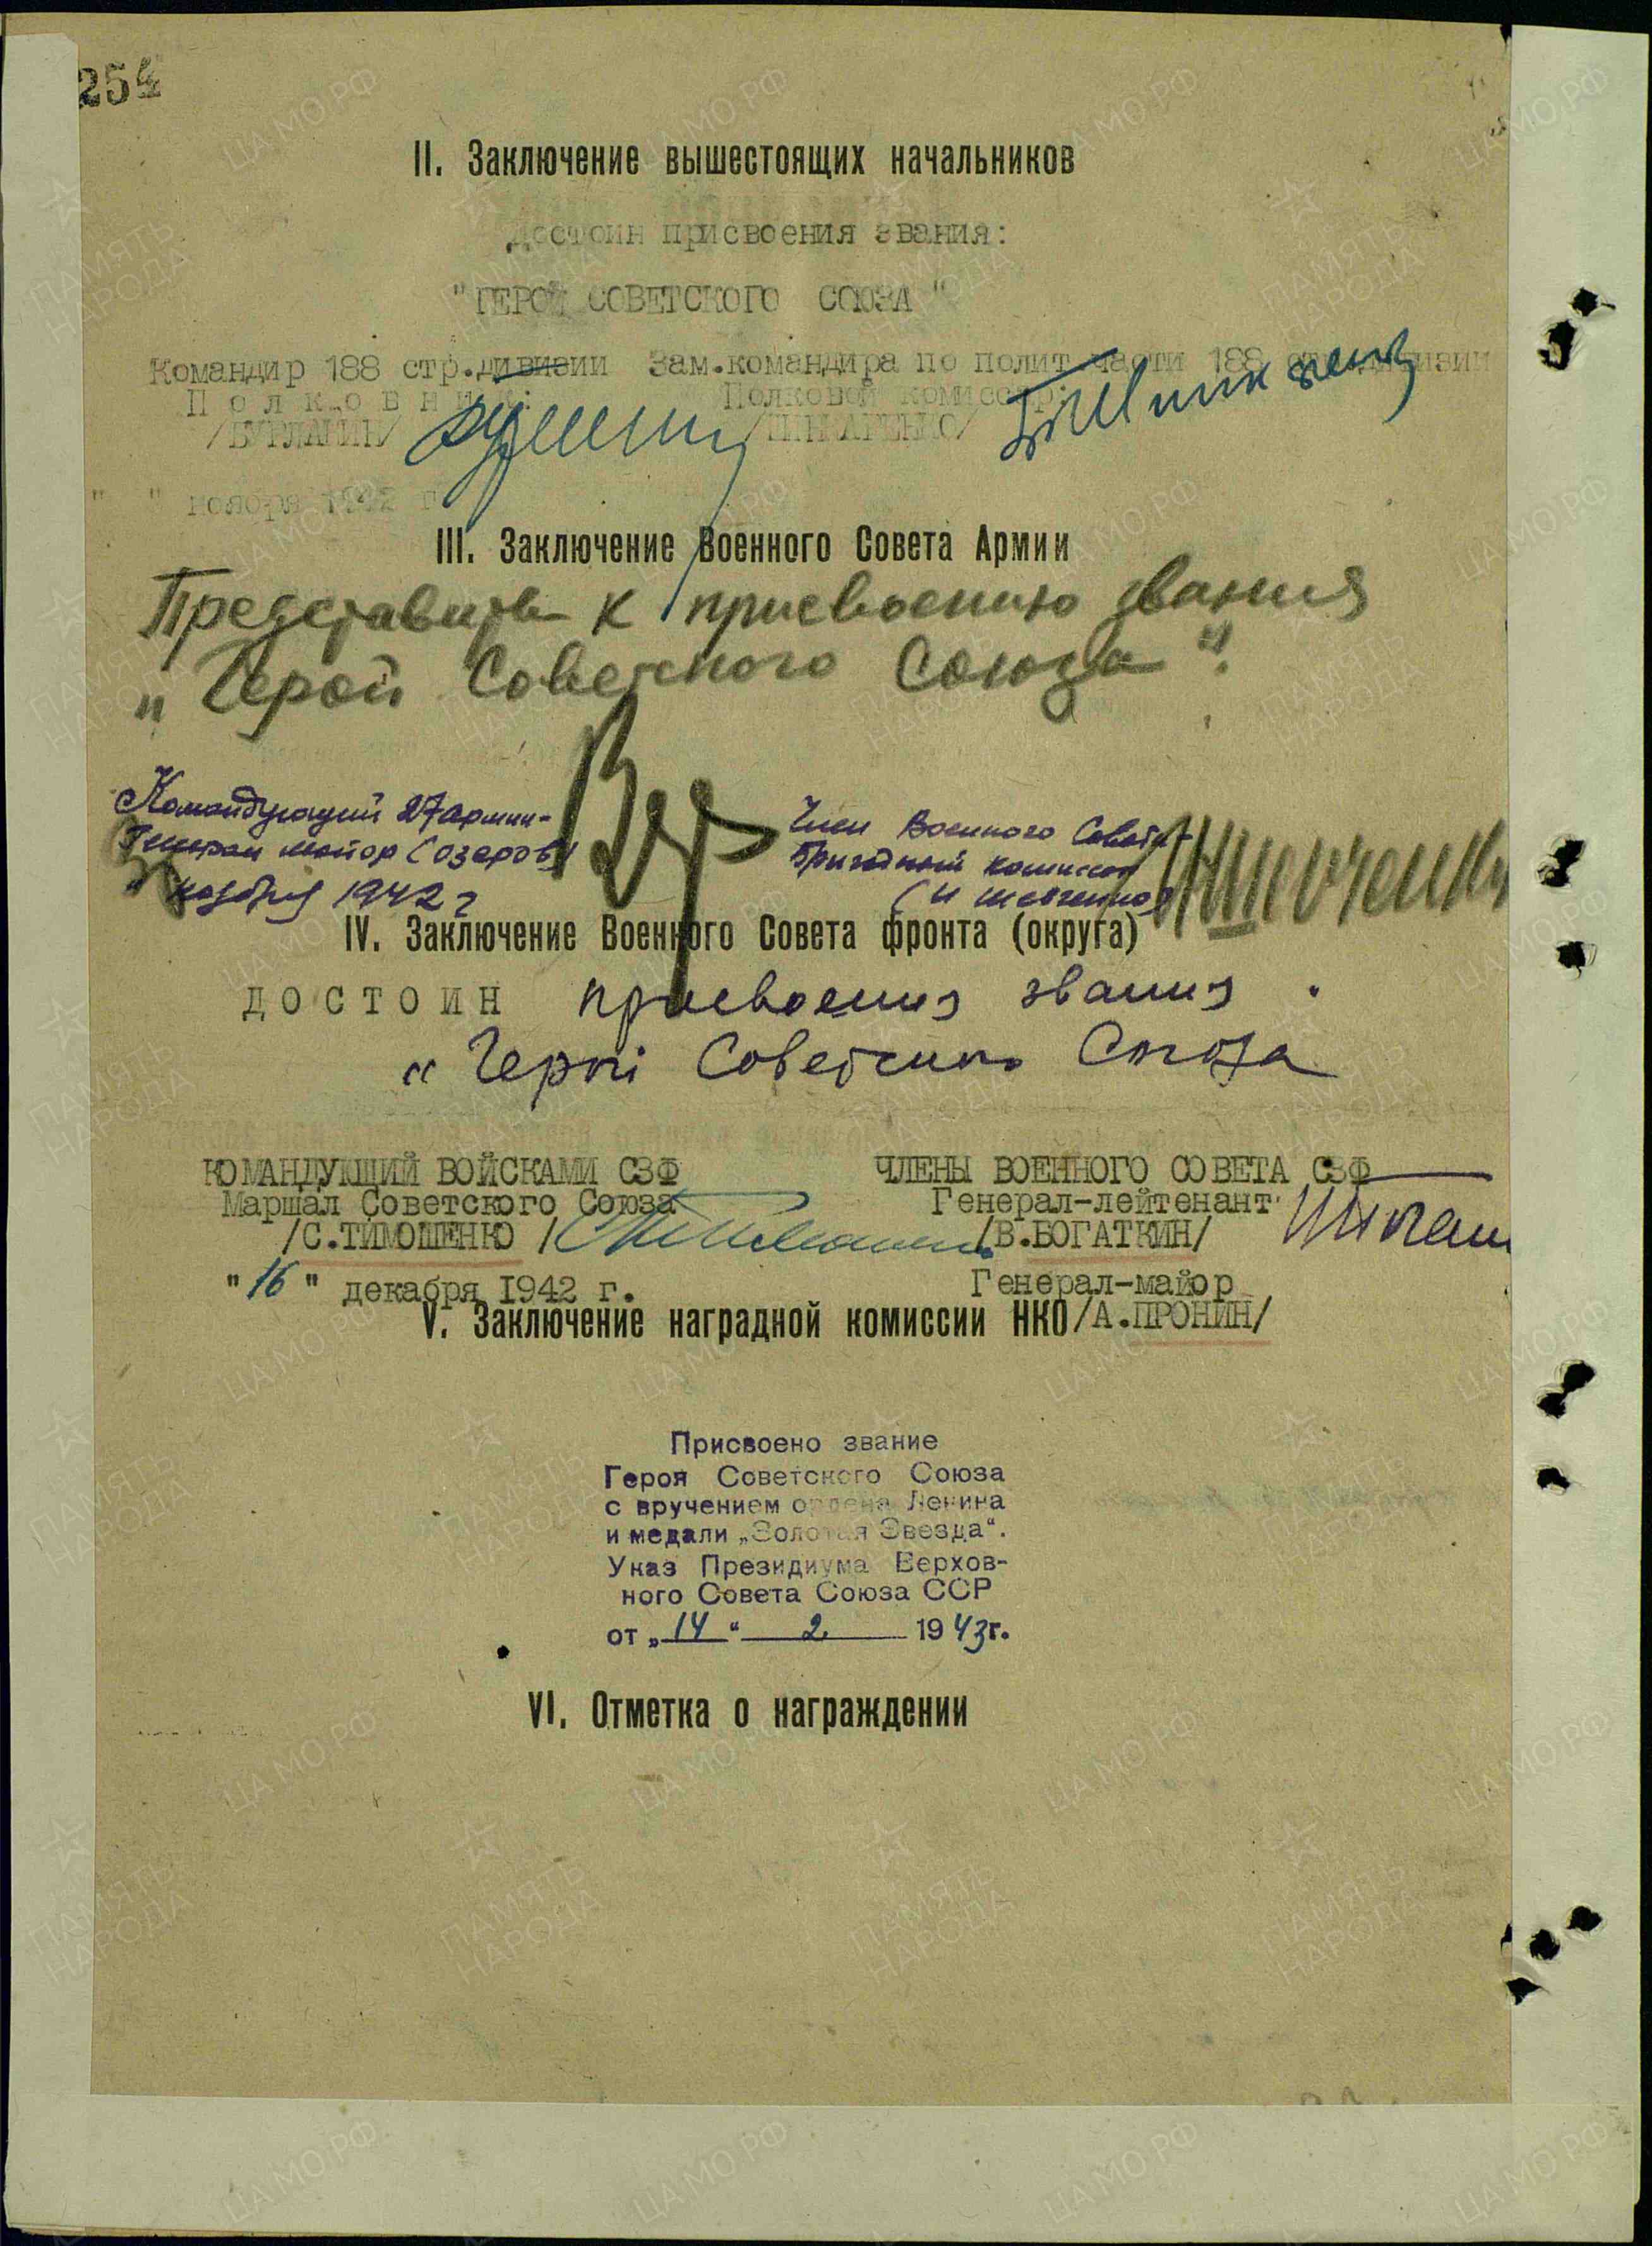 254
II. Заключение вышестоящих начальников
Достоин присвоения звания:
"ГЕРОЙ СОВЕТСКОГО СОЮЗА"
Командир 188 стр.дивизии Зам.командира по полит части 188 стр.дивизии
Полковник: Полковой комиссар:
/БУРЛАКИН/
" " ноября 1942 г
III. Заключение Военного Совета Армии
Представить к присвоению звания
„Герой Советского Союза".
Командующий 27 армии- Член Военного Совета-
Генерал майор (Озеров) Бригадный комиссар
ноября 1942 г (И Шевченко)
IV. Заключение Военного Совета фронта (округа)
ДОСТОИН присвоения звания
„Герой Советского Союза
КОМАНДУЮЩИЙ ВОЙСКАМИ СЗФ ЧЛЕНЫ ВОЕННОГО СОВЕТА СЗФ
Маршал Советского Союза Генерал-лейтенант
/С.ТИМОШЕНКО/ /В.БОГАТКИН/
"16" декабря 1942 г. Генерал-майор
V. Заключение наградной комиссии НКО /А.ПРОНИН/
Присвоено звание
Героя Советского Союза
с вручением ордена Ленина
и медали „Золотая Звезда".
Указ Президиума Верхов-
ного Совета Союза ССР
от „14" 2 1943г.
VI. Отметка о награждении
ПАМЯТЬ НАРОДА
ЦА МО РФ